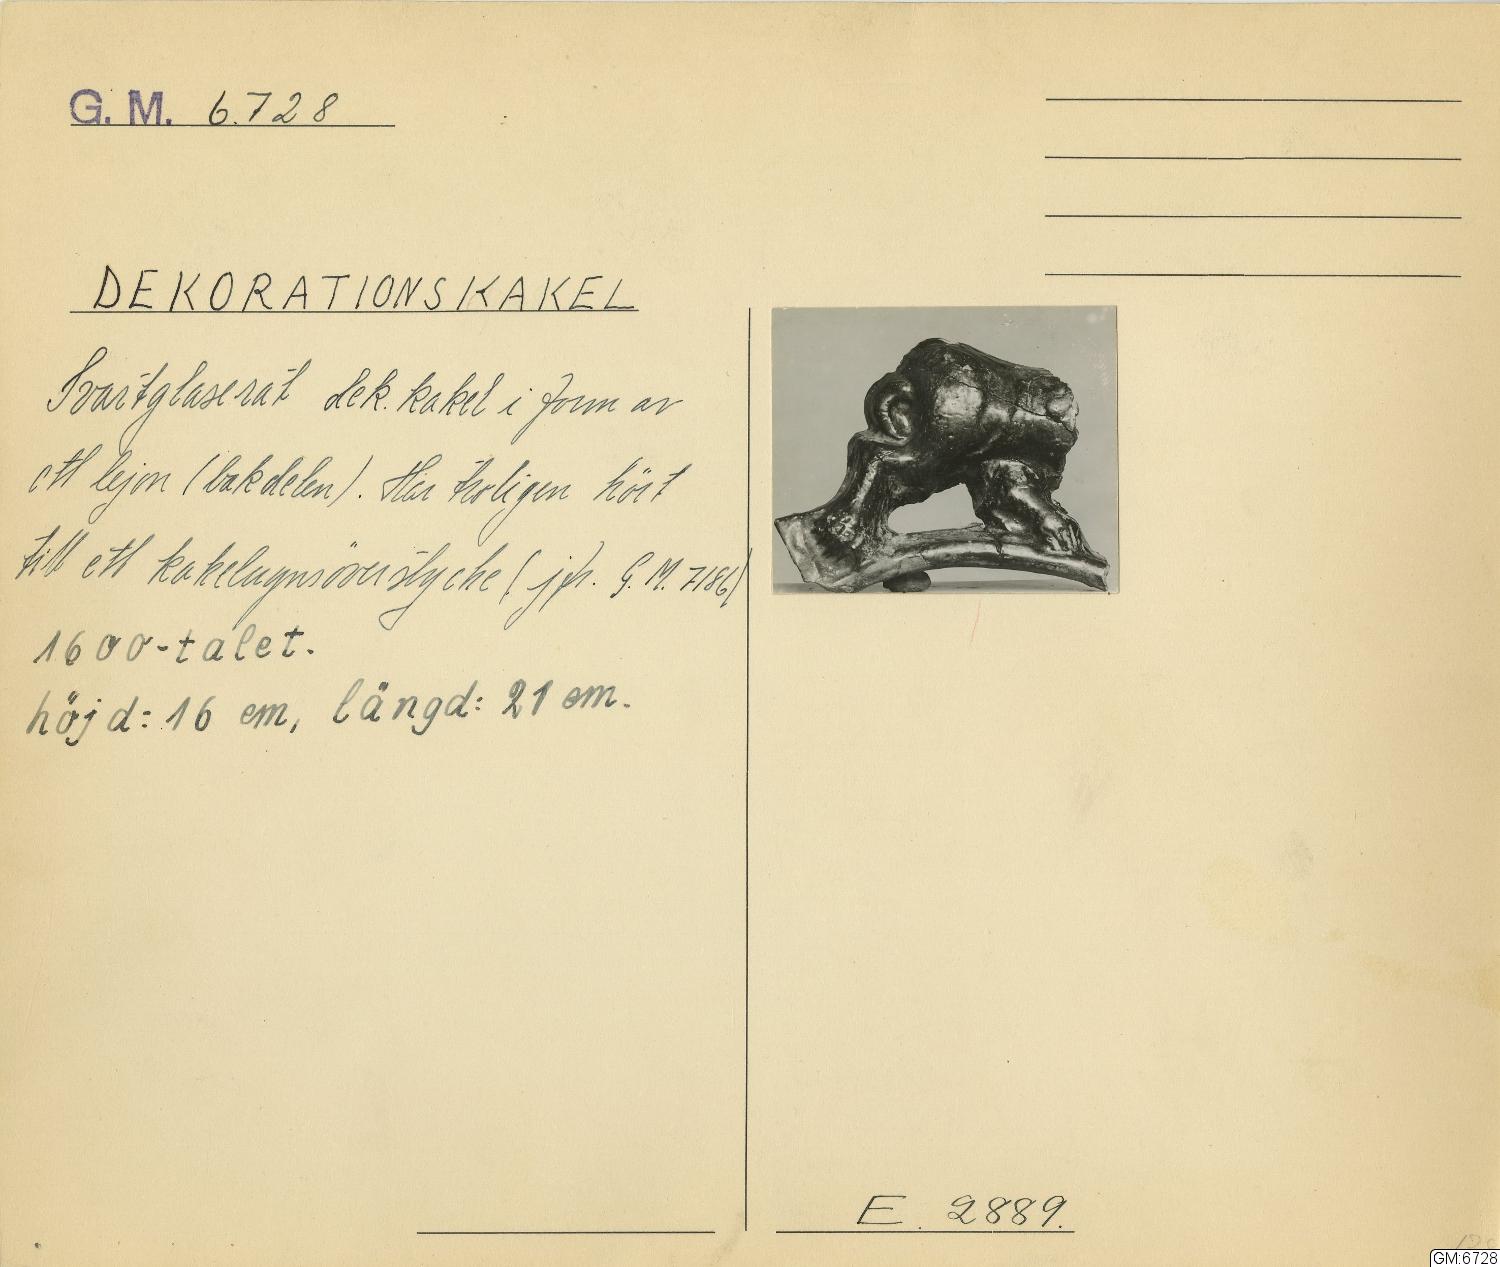 G. M. 6.728
DEKORATIONSKAKEL
Svartglaserat dek. kakel i form av
ett lejon (bakdelen). Har troligen hört
till ett kakelugnsöverstycke (jfr. G. M. 7186)
1600-talet.
höjd: 16 cm, längd: 21 cm.
E. 2889.
GM:6728